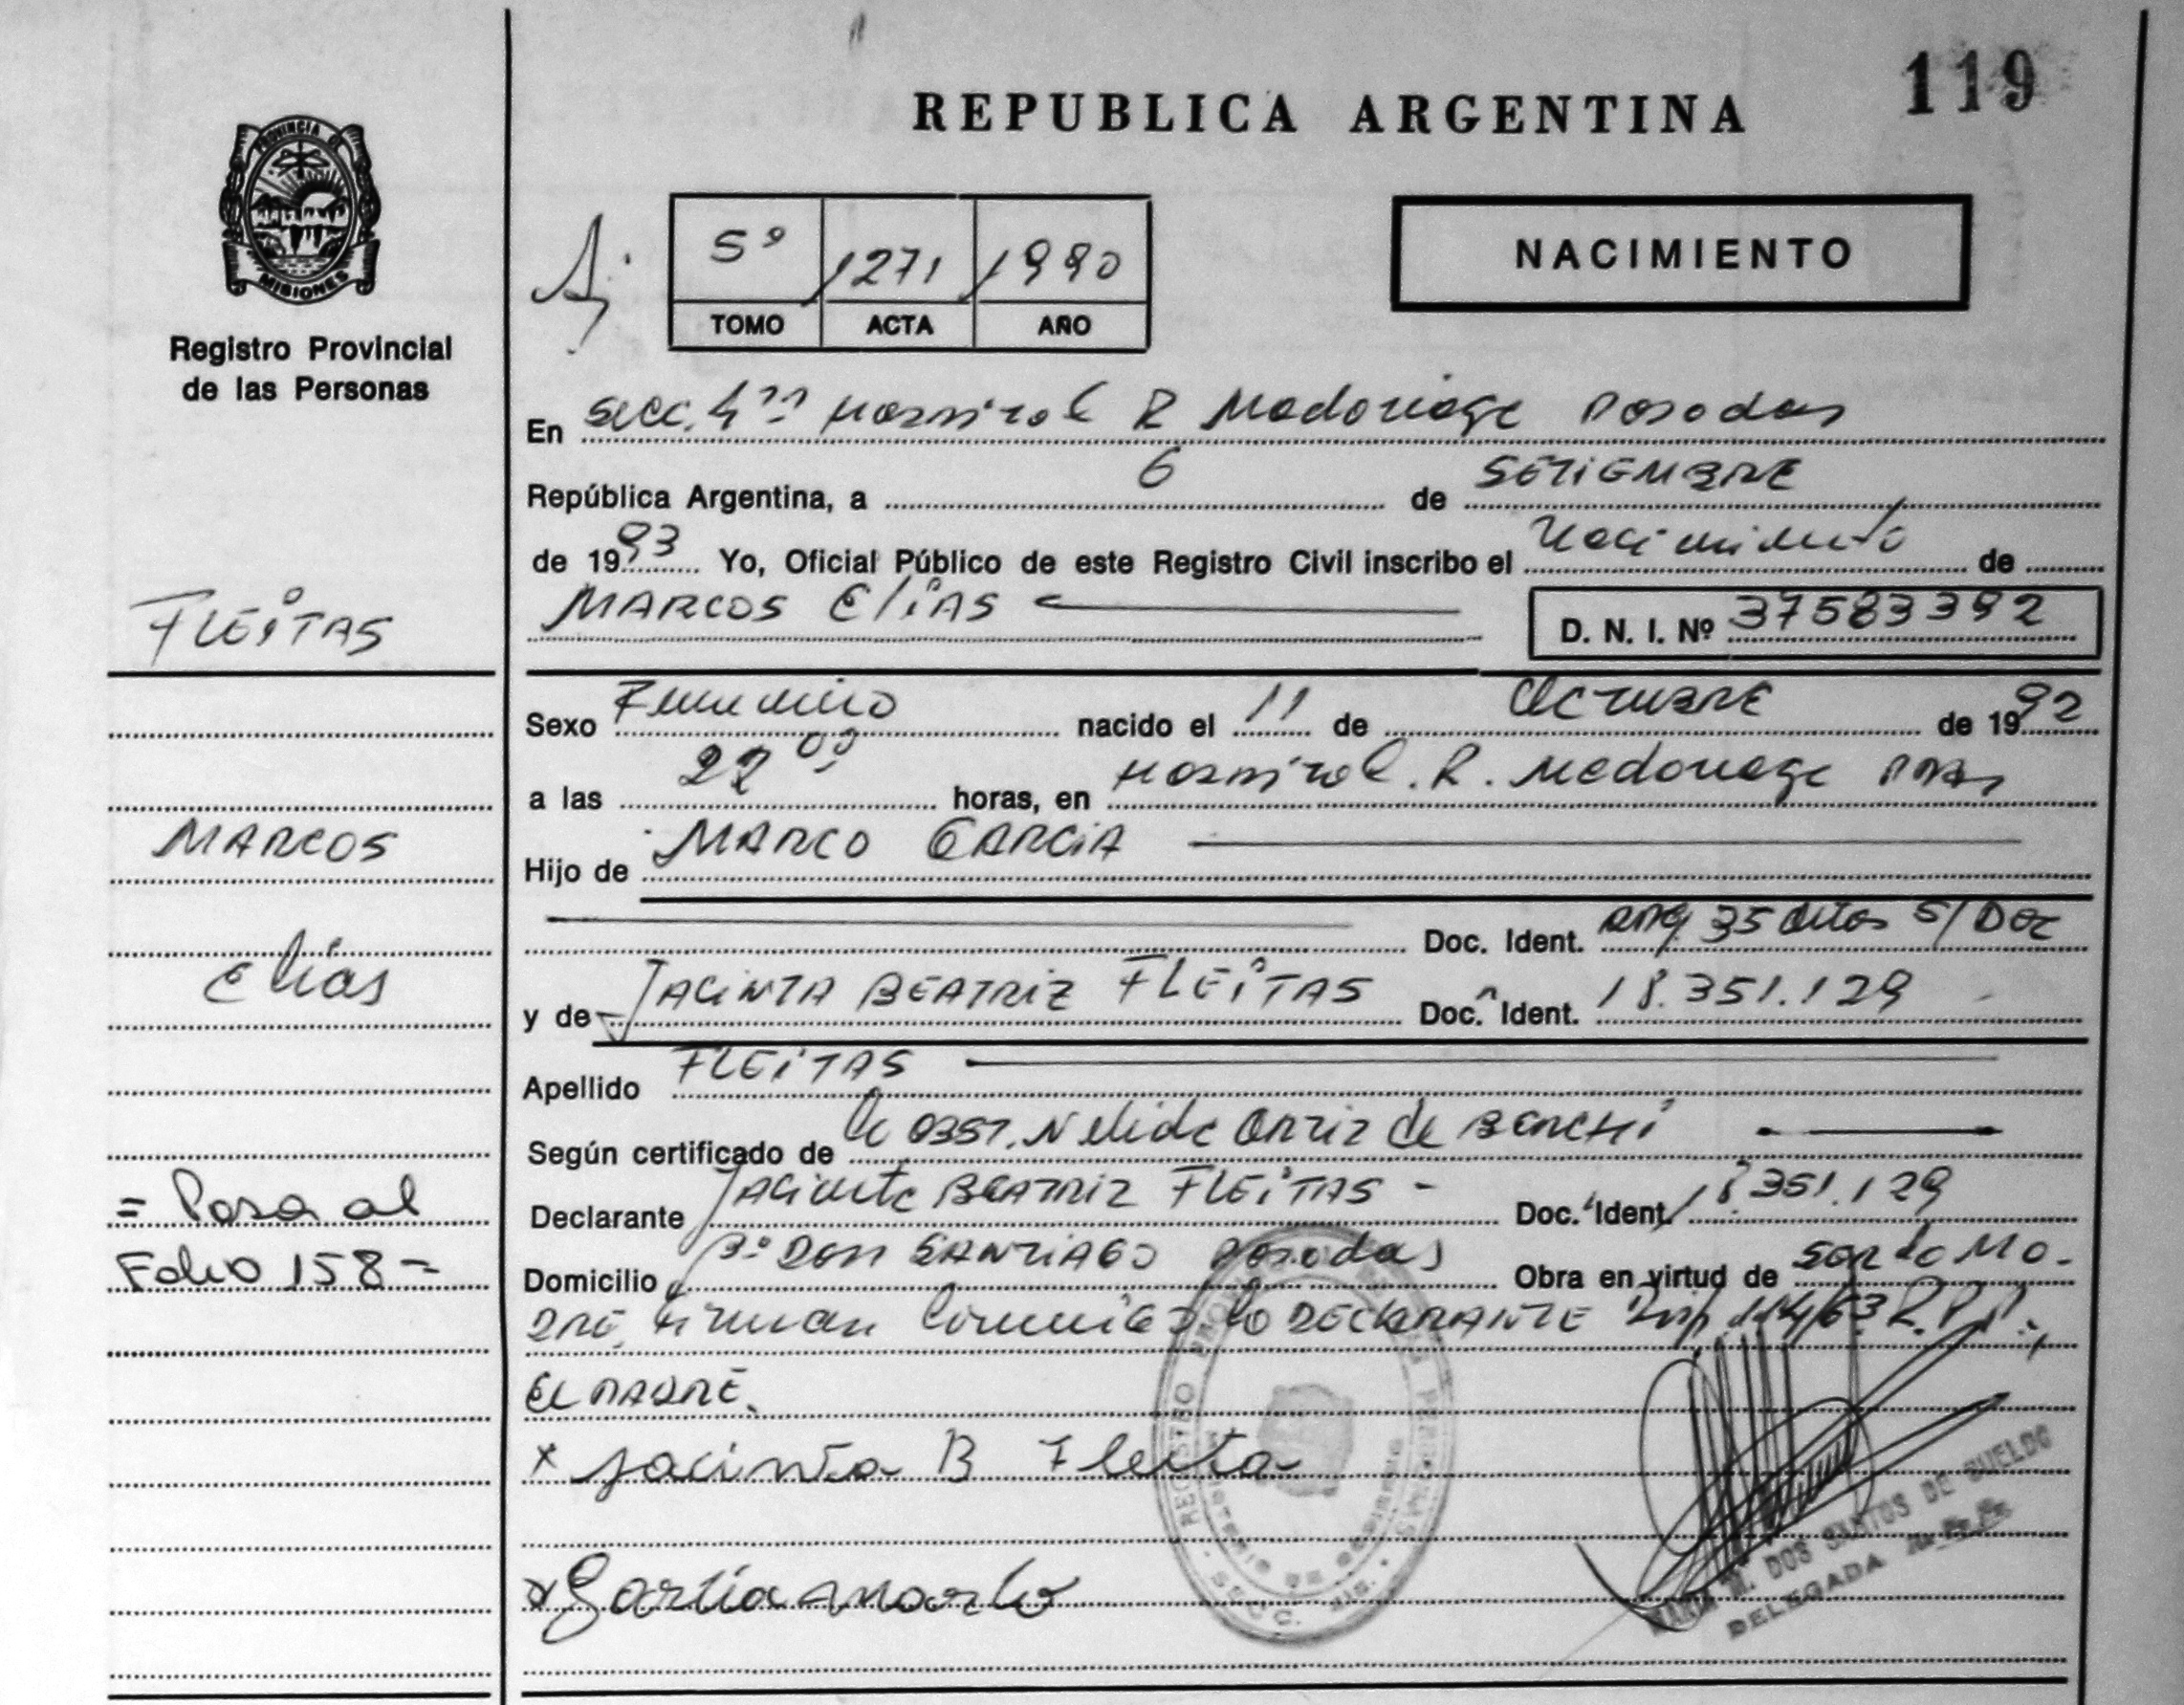 119
REPUBLICA ARGENTINA
PROVINCIA DE
MISIONES
Registro Provincial
de las Personas
5º 1271 1990
TOMO ACTA AÑO
NACIMIENTO
En secc. 4ta Hospital R Madariaga Posadas
República Argentina, a 6 de SETIEMBRE
de 1993 Yo, Oficial Público de este Registro Civil inscribo el Nacimiento de
MARCOS ElíAS D. N. I. Nº 37583392
FLEITAS
Sexo Femenino nacido el 11 de OCTUBRE de 1992
a las 22 00 horas, en Hospital R. Madariaga Pdas
MARCOS
Hijo de MARCO GARCIA
Doc. Ident. Arg 35 años S/Doc
Elías
y de JACINTA BEATRIZ FLEITAS Doc. Ident. 18.351.129
Apellido FLEITAS
Según certificado de la Obst. Nelida Ortiz de
= Pasa al
Declarante Jacinta BEATRIZ FLEITAS - Doc. Ident. 18.351.129
Folio 158 =
Domicilio Bº DON SANTIAGO Posadas Obra en virtud de ser la MA-
DRE, Firman la DECLARANTE 114/63 R.P.P.
EL PADRE.
x Jacinta B Fleita
x Garcia marco
MARIA M. DOS SANTOS DE SUELDO
DELEGADA